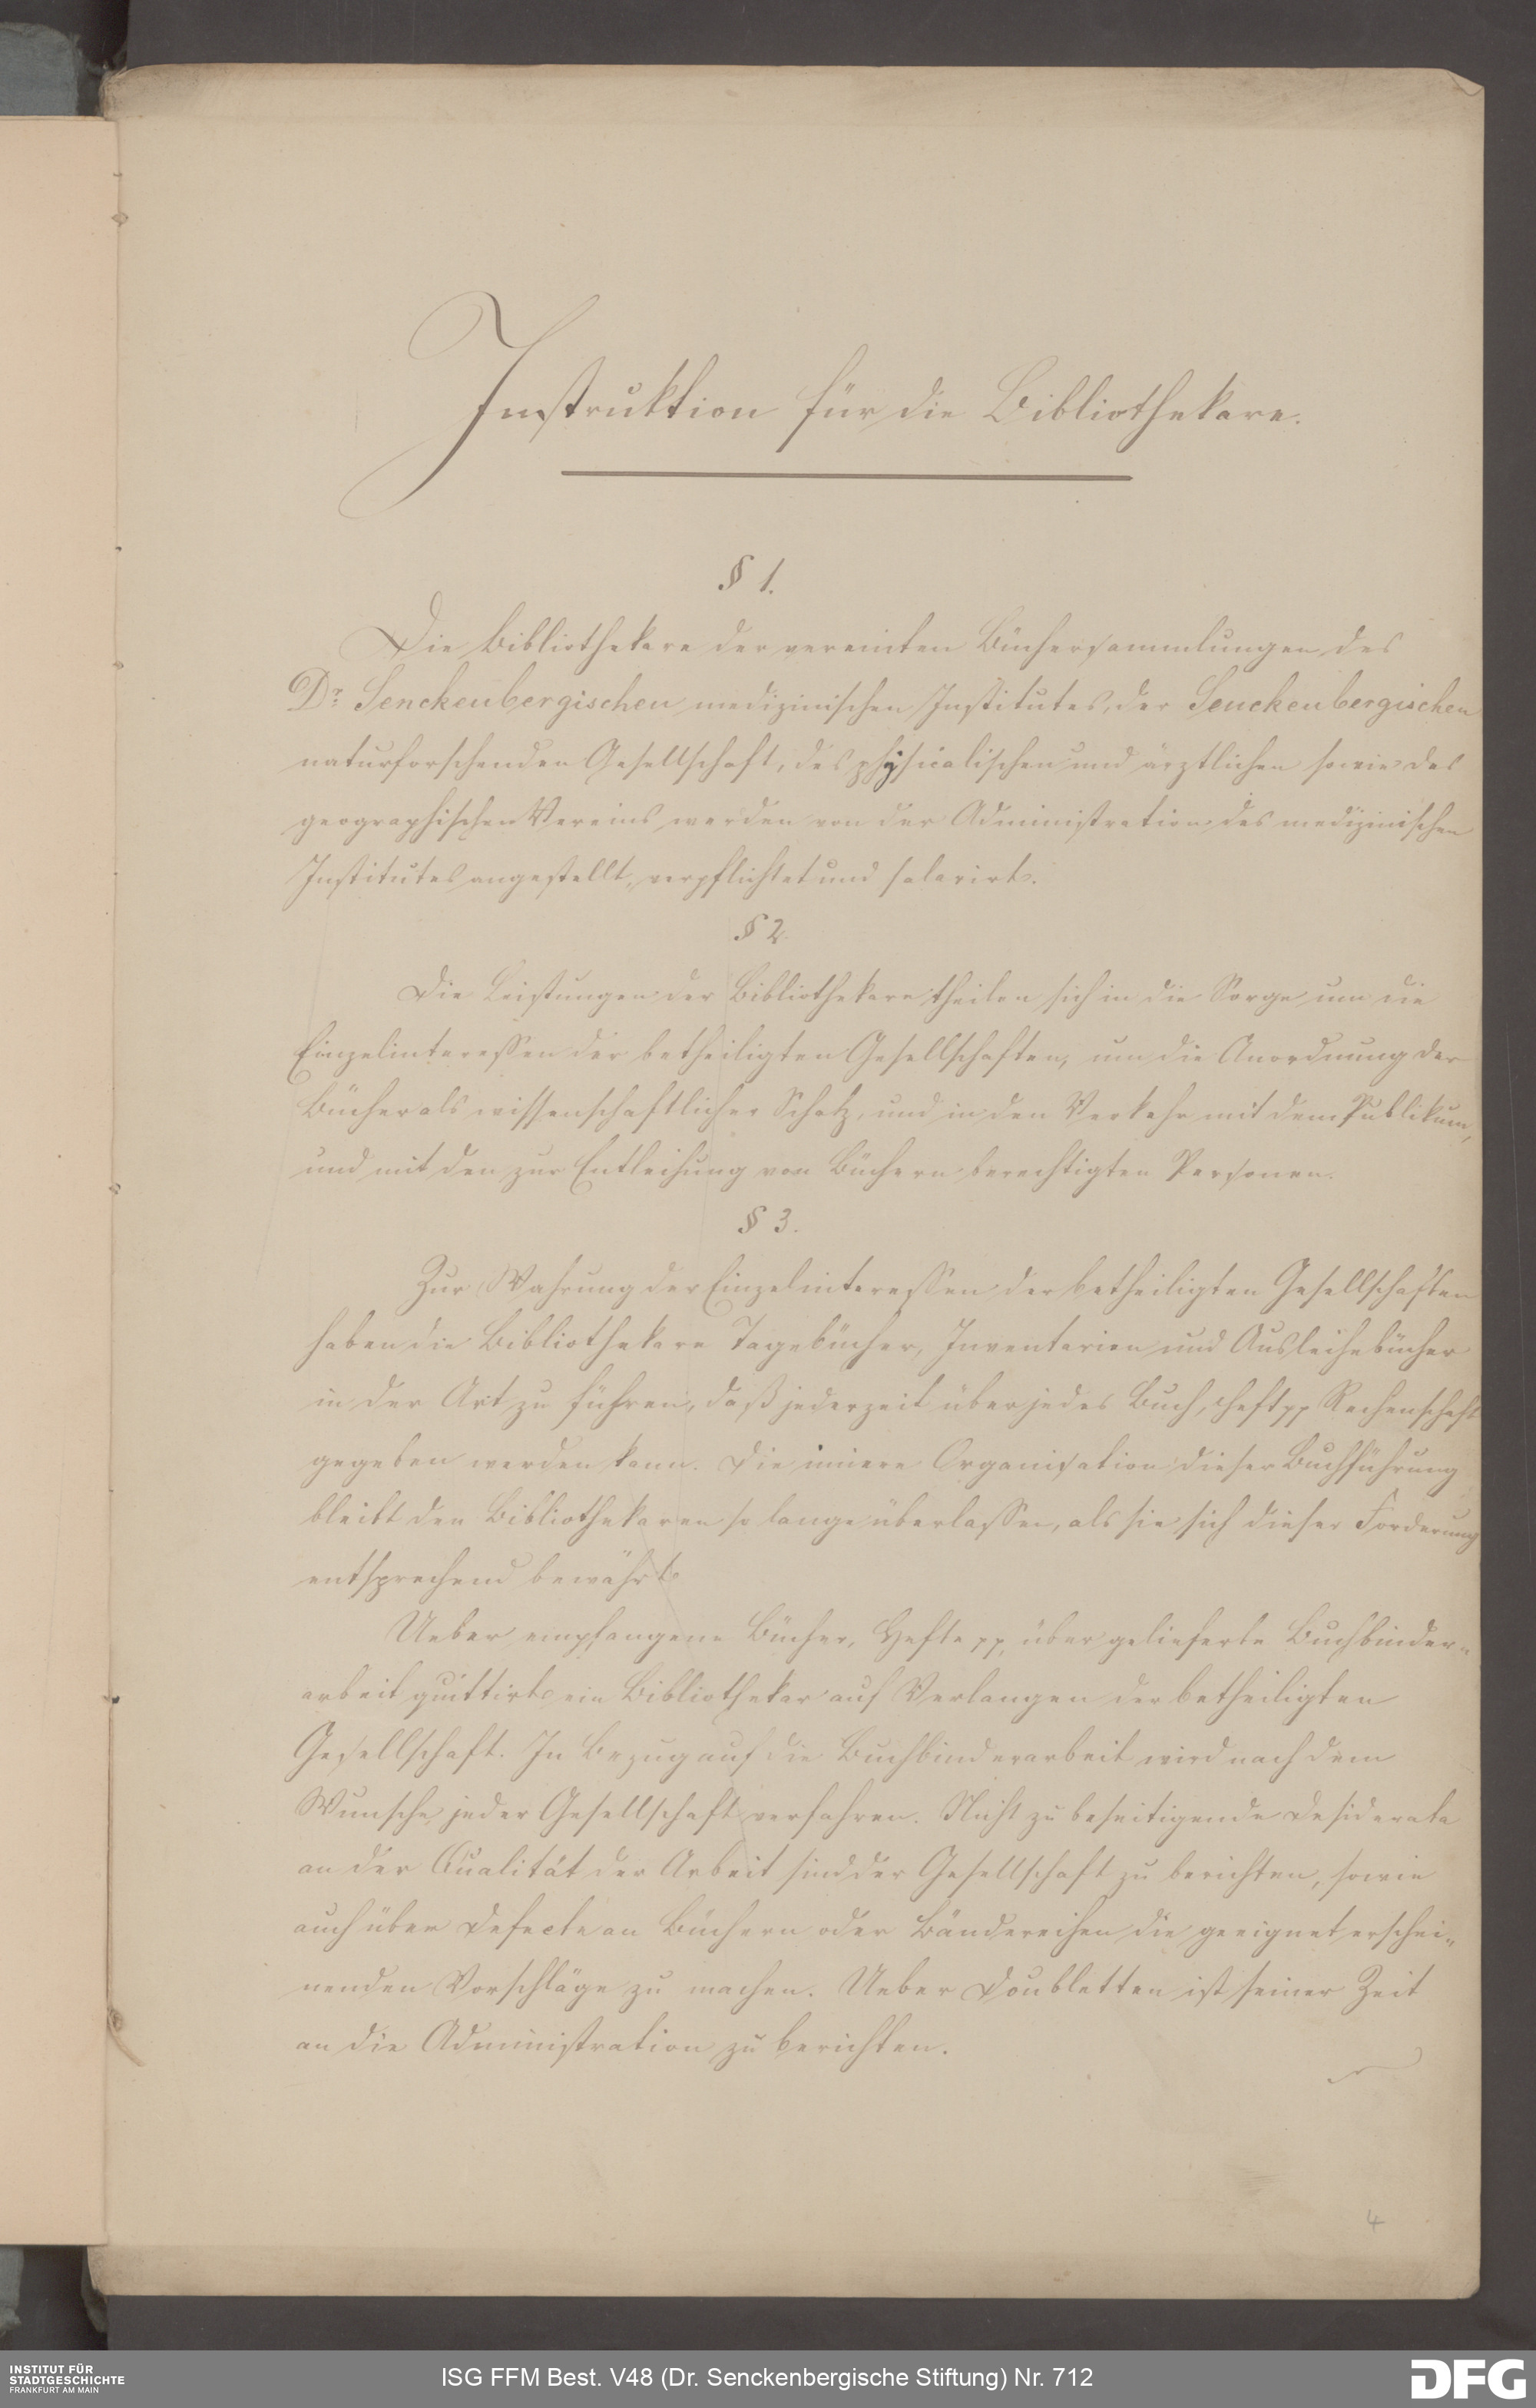 Instruktion für die Bibliothekare.
§ 1.
Die Bibliothekare der vereinten Büchersammlungen des
Dr. Senckenbergischen medizinischen Institutes, der Senckenbergischen
naturforschenden Gesellschaft, des physicalischen und ärztlichen sowie des
geographischen Vereins werden von der Administration des medizinischen
Institutes angestellt, verpflichtet und salarirt.
§ 2.
Die Leistungen der Bibliothekare theilen sich in die Sorge um die
Einzelinteressen der betheiligten Gesellschaften, um die Anordnung der
Bücher als wissenschaftlicher Schatz, und in den Verkehr mit dem Publikum,
und mit den zur Entleihung von Büchern berechtigten Personen.
§ 3.
Zur Wahrung der Einzelinteressen der betheiligten Gesellschaften
haben die Bibliothekare Tagebücher, Inventarien und Ausleihebücher
in der Art zu führen, daß jederzeit über jedes Buch, Heft pp Rechenschaft
gegeben werden kann. Die innere Organisation dieser Buchführung
bleibt den Bibliothekaren so lange überlassen, als sie sich dieser Forderung
entsprechend bewährt.
Ueber empfangene Bücher, Hefte pp, über gelieferte Buchbinder-
arbeit quittirt ein Bibliothekar auf Verlangen der betheiligten
Gesellschaft. In Bezug auf die Buchbinderarbeit wird nach dem
Wunsche jeder Gesellschaft verfahren. Nicht zu beseitigende Desiderata
an der Qualität der Arbeit sind der Gesellschaft zu berichten, sowie
auch über Defecte an Büchern oder Bändereihen die geeignet erschei-
nenden Vorschläge zu machen. Ueber Doubletten ist seiner Zeit
an die Administration zu berichten.
4
INSTITUT FÜR
STADTGESCHICHTE
FRANKFURT AM MAIN
ISG FFM Best. V48 (Dr. Senckenbergische Stiftung) Nr. 712
DFG